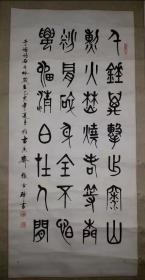 千錘萬擊出深山
烈火焚燒若等閒
粉骨碎身全不怕
要留清白在人間
于謙詩石灰吟
書